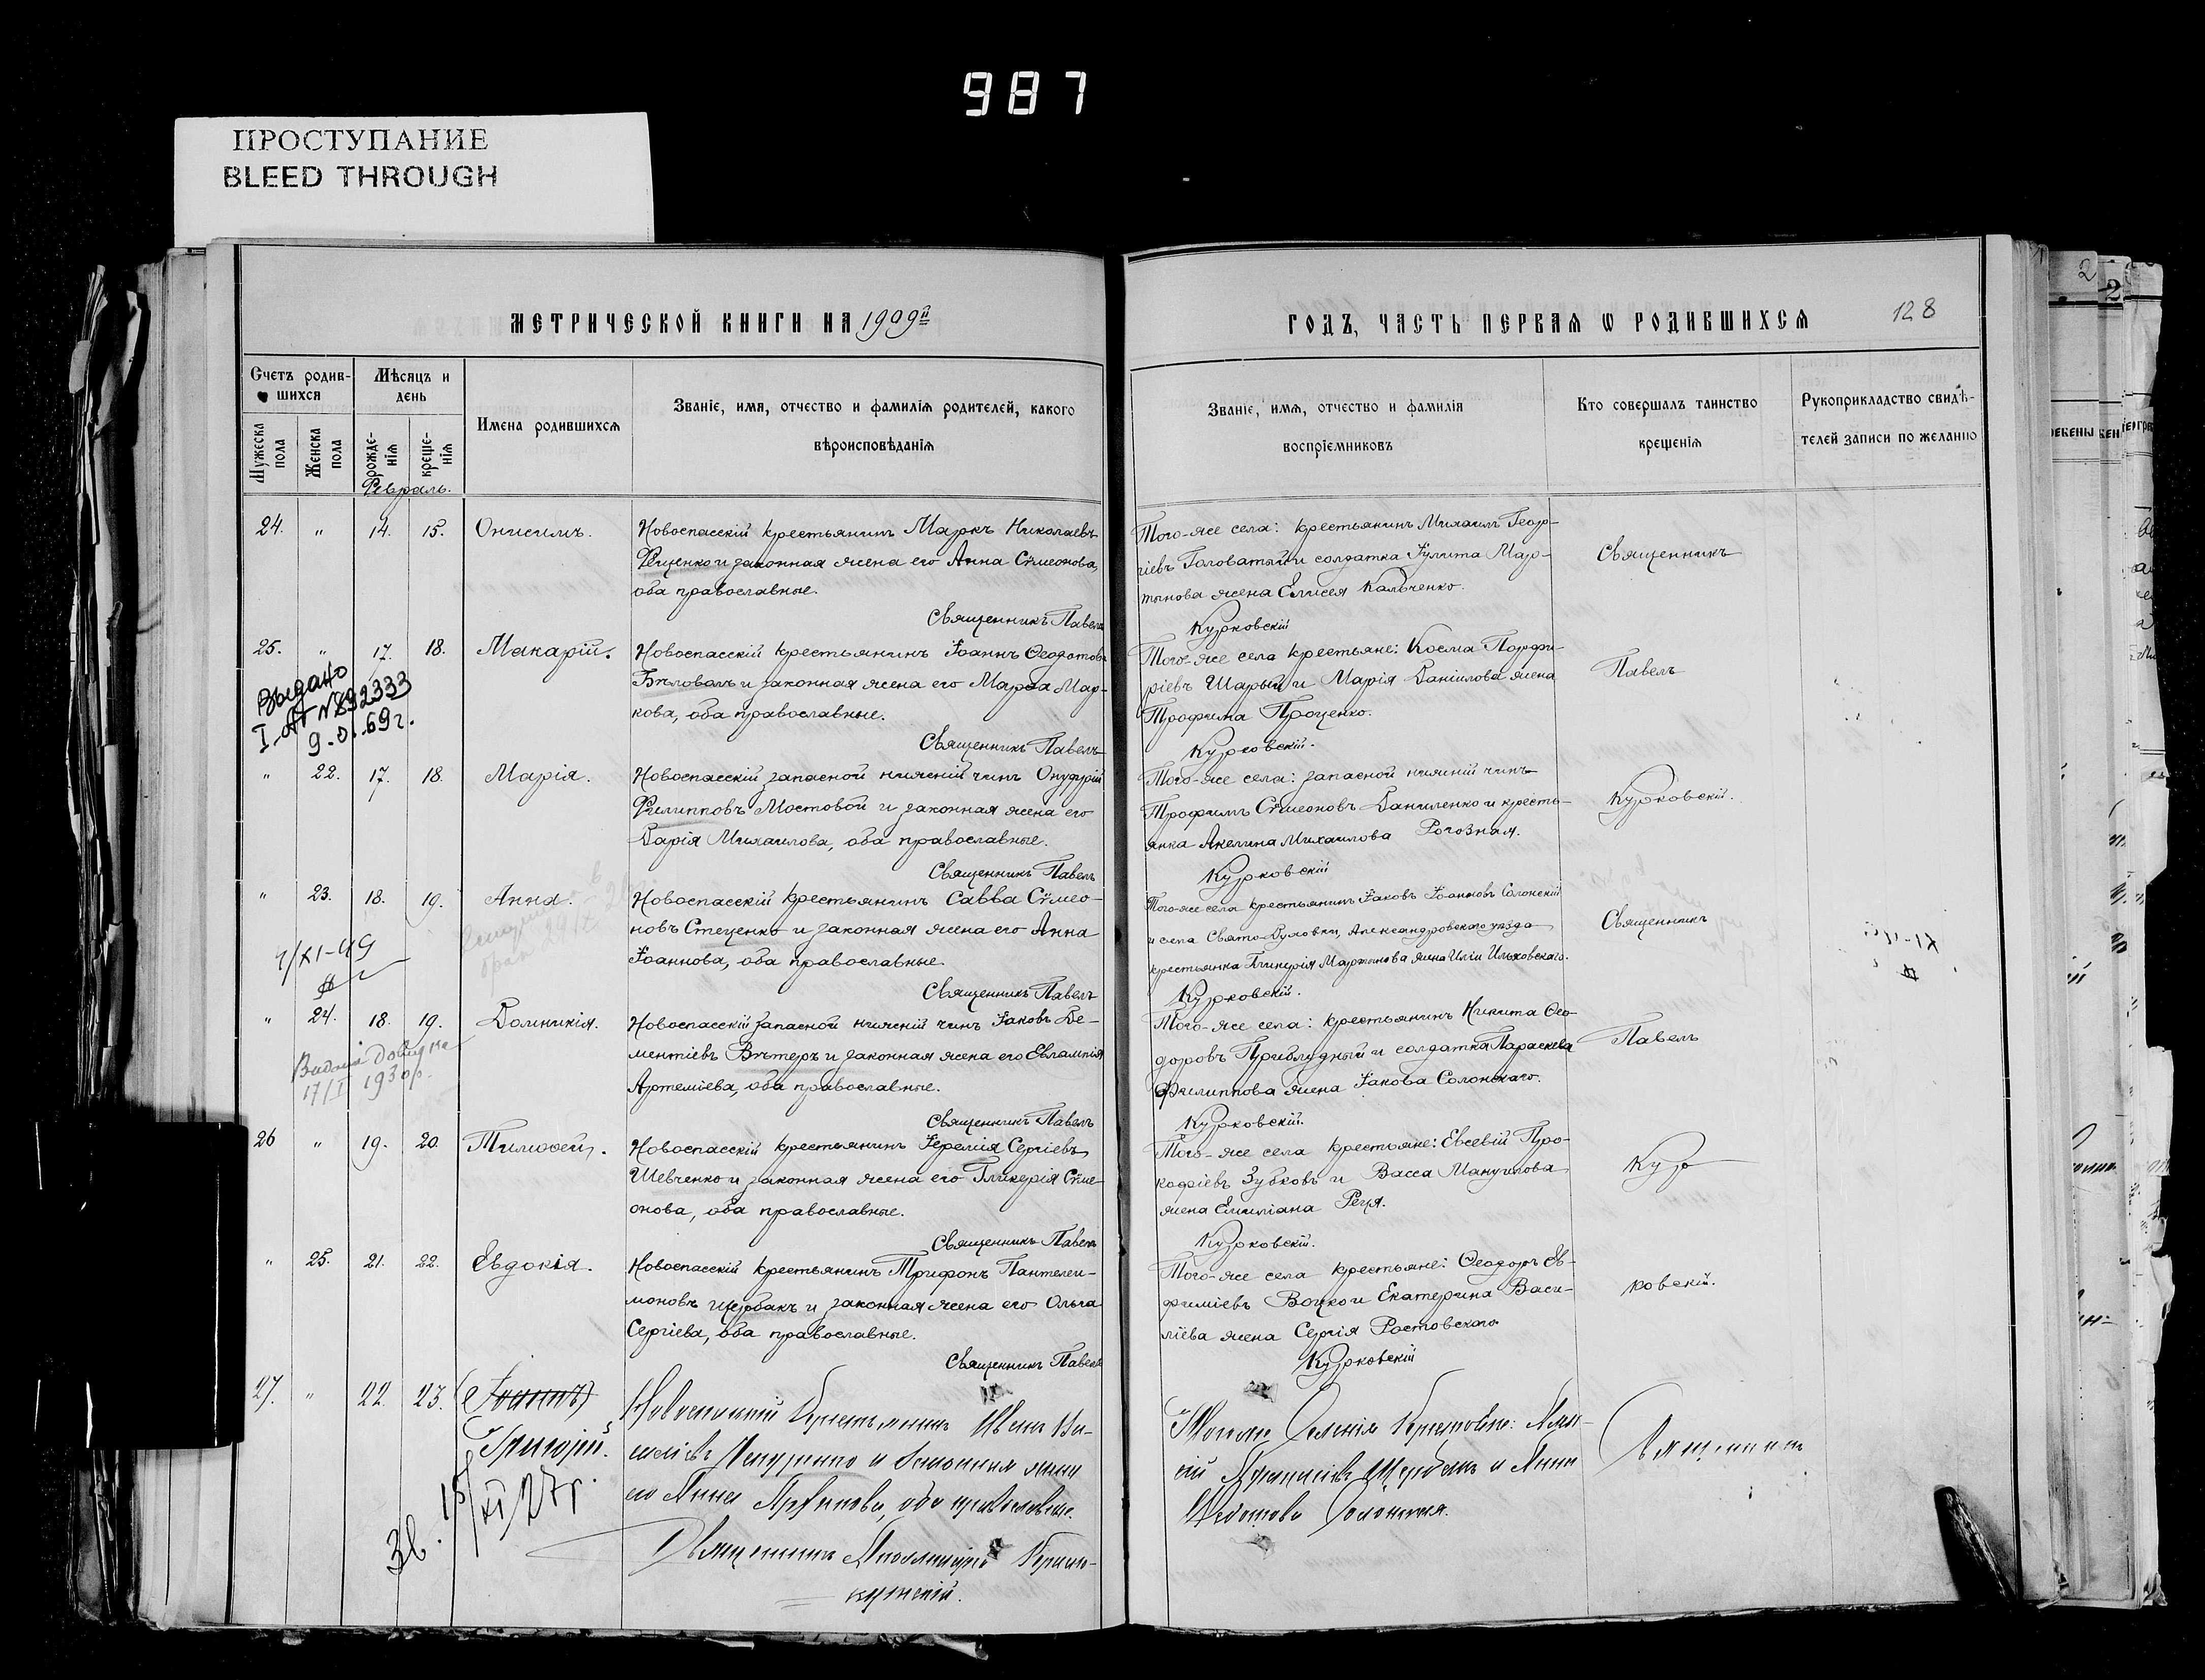 987
ПРОСТУПАНИЕ
BLEED THROUGH
МЕТРИЧЕСКОЙ КНИГИ НА 1909й
Счетъ родив-
шихся
Мѣсяцъ и
день
Мужеска
пола
Женска
пола
рожде-
нія
креще-
нія
Имена родившихся
Званіе, имя, отчество и фамилія родителей, какого
вѣроисповѣданія
Февраль.
24. " 14. 15. Онисимъ.
Новоспасскій крестьянинъ Маркъ Николаевъ
Фещенко и законная жена его Анна Сѵмеонова,
оба православные.
Священникъ Павелъ
25. " 17. 18. Макарій.
Новоспасскій крестьянинъ Іоаннъ Ѳеодотовъ
Бѣловалъ и законная жена его Марѳа Мар-
кова, оба православные.
Священникъ Павелъ
Выдано
I-АГ №892333
9.01.69г.
" 22. 17. 18. Марія.
Новоспасскій запасной нижній чинъ Онуфрій
Филипповъ Мостовой и законная жена его
Дарія Михаилова, оба православные.
Священникъ Павелъ
" 23. 18. 19. Анна.
Новоспасскій крестьянинъ Савва Сѵмео-
новъ Стеценко и законная жена его Анна
Іоаннова, оба православные.
Священникъ Павелъ
4/XI-49
" 24. 18. 19. Домникія.
Новоспасскій запасной нижній чинъ Іаковъ Де-
ментіевъ Вѣтеръ и законная жена его Евлампія
Артеміева, оба православные.
Священникъ Павелъ
17/I 1930р.
26 " 19. 20 Тимоѳей.
Новоспасскій крестьянинъ Іеремія Сергіевъ
Шевченко и законная жена его Гликерія Сѵме-
онова, оба православные.
Священникъ Павелъ
" 25. 21. 22. Евдокія.
Новоспасскій крестьянинъ Трифонъ Пантелеи-
моновъ Щербакъ и законная жена его Ольга
Сергіева, оба православные.
Священникъ Павелъ
27. " 22. 23. (Іоаннъ)
Григорій.
Новоспасскій Крестьянинъ Иванъ Ва-
и законная жена
его Анна оба православные.
Священникъ
Зв. 15/XI 27г.
ГОДЪ, ЧАСТЬ ПЕРВАЯ Ѡ РОДИВШИХСЯ
128
Званіе, имя, отчество и фамилія
воспріемниковъ
Кто совершалъ таинство
крещенія
Рукоприкладство свидѣ-
телей записи по желанію
Того-же села: крестьянинъ Михаилъ Геор-
гіевъ Головатый и солдатка Іулита Мар-
тынова жена Елисея Кальченко.
Курковскій
Священникъ
Того-же села крестьяне: Косма Порфи-
ріевъ Шарый и Марія Даніилова жена
Трофима Проценко.
Курковскій.
Павелъ
Того-же села: запасной нижній чинъ
Трофимъ Сѵмеоновъ Даниленко и кресть-
янка Акелина Михаилова Рогозная.
Курковскій
Курковскій.
Того-же села крестьянинъ Іаковъ Іоанновъ Солонскій
и села Свято-Духовки, Александровскаго уѣзда
крестьянка Гликерія Мартынова жена Иліи Ильковскаго.
Курковскій.
Священникъ
Того-же села: крестьянинъ Никита Ѳео-
доровъ Приблудный и солдатка Параскева
Филиппова жена Іакова Солонскаго.
Курковскій.
Павелъ
Того-же села крестьяне: Евсевій Про-
кофіевъ Зубковъ и Васса Мануилова
жена Емиліана Рець.
Курковскій.
Кур
Того-же села крестьяне: Ѳеодоръ Ев-
фиміевъ Воцко и Екатерина Васи-
ліева жена Сергія Ростовскаго
Курковскій
ковскій.
Щербакъ и Анна
Солонская.
Священникъ